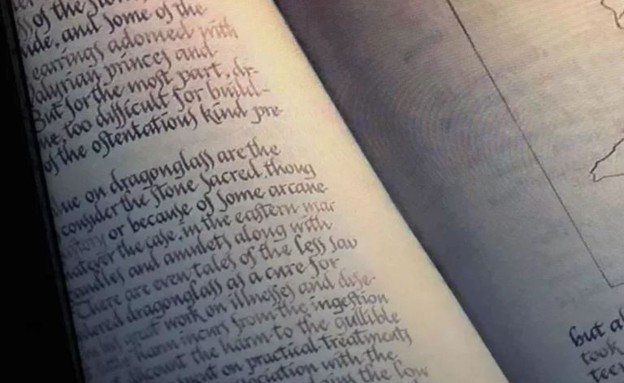 of the stone
ide, and some of the
earrings adorned with
Valyrian princes and
But for the most part, dr-
too difficult for build-
of the ostentatious kind pre-
ue on dragonglass are the
consider the stone sacred thoug
or because of some arcane
hatever the case, in the eastern mar
candles and amulets along with
There are even tales of the less sav
dragonglass as a cure for
great work on illnesses and dise-
harm incurs from the ingestion
count the harm to the gullible
on practical treatments
ociation with the
the low
but al
took